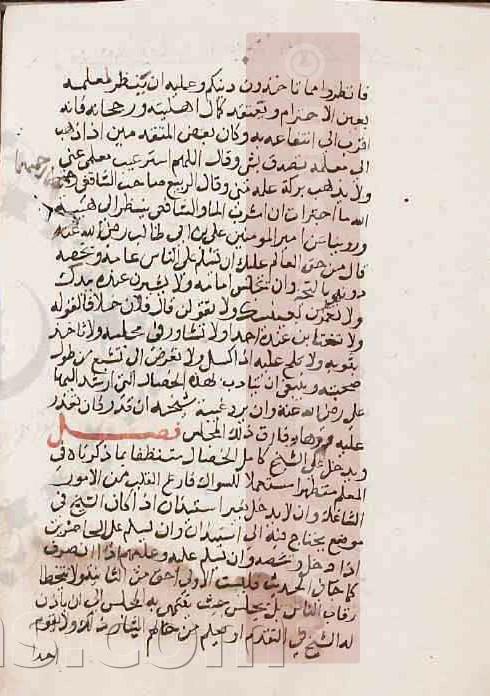 فانظروا مما تاخذون دينكم وعليه ان ينظر لمعلمه
بعين الاحترام ويعتقد كمال اهليته ورجحانه فانه
اقرب الى انتفاعه به وكان بعض المتقدمين اذا ذهب
الى معلمه تصدق بشي وقال اللهم استر عيب معلمي عني
ولا تذهب بركة علمه مني وقال الربيع صاحب الشافعي رحمهما
الله ما اجترات ان اشرب الما والشافعي ينظر الى هيبة
وروينا عن امير المومنين علي بن ابي طالب رضي الله عنه
قال من حق العالم عليك ان تسلم على الناس عامة وتخصه
دونهم بالتحية وان تجلس امامه ولا تشيرن عنده بيدك
ولا تغمزن بعينك ولا تقولن قال فلان خلافا لقوله
ولا تغتابن عنده احدا ولا تشاور في مجلسه ولا تاخذ
بثوبه ولا تلح عليه اذا كسل ولا تعرض اي تشبع من طول
صحبته وينبغي ان يتادب بهذه الخصال التي ارشد اليها
علي رضي الله عنه وان يرد غيبة شيخه ان قدر فان تعذر
عليه ردها فارق ذلك المجلس فصل
ويدخل على الشيخ كامل الخصال متنظفا بما ذكرناه في
المعلم متطهرا مستعملا للسواك فارغ القلب من الامور
الشاغلة وان لا يدخل بغير استيذان اذا كان الشيخ في
موضع يحتاج فيه الى استيذان وان يسلم على الحاضرين
اذا دخل ويخصه وان يسلم عليه وعليهم اذا انصرف
كما جا في الحديث فليست الاولى احق من الثانية ولا يتخطا
رقاب الناس بل يجلس حيث ينتهي به المجلس الى ان ياذن
له الشيخ في التقدم او يعلم من حالهم ايثار ذلك ولا يقيم
احدا